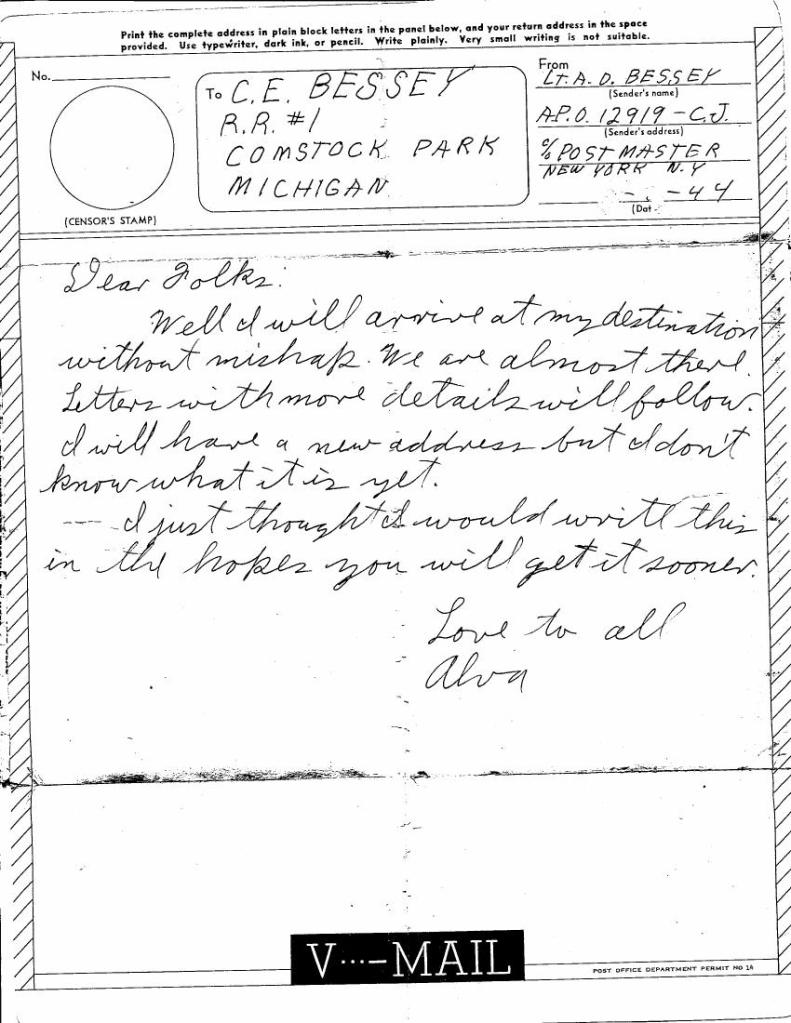 Print the complete address in plain block letters in the panel below, and your return address in the space
provided. Use typewriter, dark ink, or pencil. Write plainly. Very small writing is not suitable.
No.
(CENSOR'S STAMP)
To C. E. BESSEY
R.R. #1
COMSTOCK PARK
MICHIGAN
From
LT. A. D. BESSEY
(Sender's name)
A.P.O. 12919 - C.J.
(Sender's address)
c/o POST MASTER
NEW YORK N.Y
- -44
(Dat
Dear Folks:
Well I will arrive at my destination
without mishap. We are almost there.
Letters with more details will follow.
I will have a new address but I don't
know what it is yet.
I just thought I would write this
in the hopes you will get it sooner.
Love to all
Alva
V···-MAIL
POST OFFICE DEPARTMENT PERMIT NO 1A